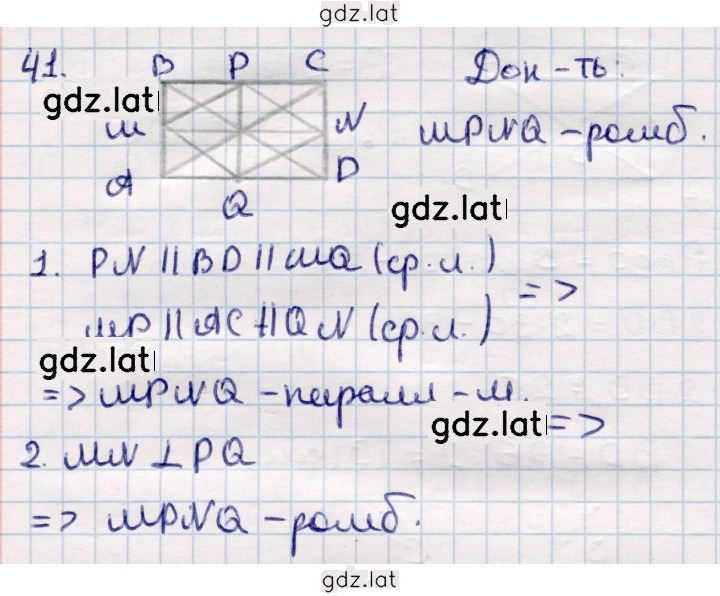 gdz.lat
41. B P C Док-ть:
gdz.lat
M N MPNQ - ромб.
A D
Q gdz.lat
1. PN || BD || MQ (ср.л.)
=>
MP || AC || QN (ср.л.)
gdz.lat
=> MPNQ - паралл-м.
gdz.lat =>
2. MN ⊥ PQ
=> MPNQ - ромб.
gdz.lat